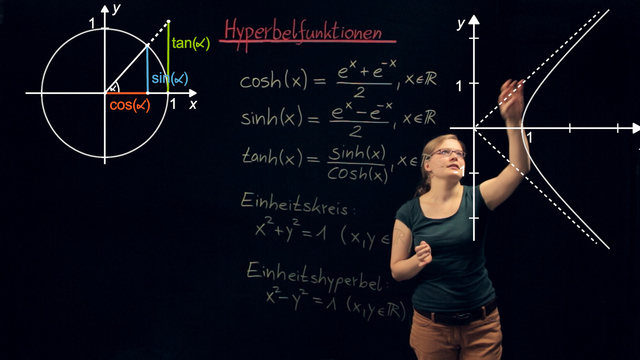 y
1
tan(α)
sin(α)
α
cos(α)
1
x
Hyperbelfunktionen
cosh(x) = (e^x + e^-x)/2, x∈ℝ
sinh(x) = (e^x - e^-x)/2, x∈ℝ
tanh(x) = sinh(x)/cosh(x), x∈
Einheitskreis:
x²+y²=1 (x,y∈
Einheitshyperbel:
x²-y²=1 (x,y∈ℝ)
y
1
1